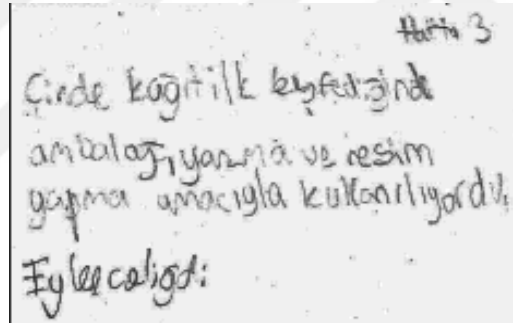 Hafta 3
Çinde kağıt ilk keşfediğinde
ambalaj, yazma ve resim
yapma amacıyla kullanılıyordu.
Eyleecaligdi